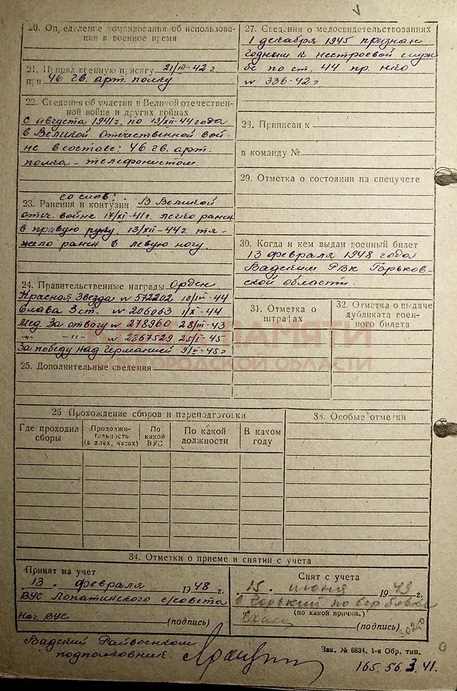 20. Определение командования об использовании в военное время
21. Принял военную присягу 21/III-42 г.
при 46 гв. арт. полку
22. Сведения об участии в Великой отечественной
войне и других войнах
с августа 1941 г. по 13/XI-44 года
в Великой отечественной вой-
не в составе: 46 гв. арт.
полка - телефонистом.
23. Ранения и контузии со слов: В Великой
отеч. войне 14/XI-41 г. легко ранен
в правую руку. 13/XI-44 г. тя-
жело ранен в левую ногу.
24. Правительственные награды Орден
Красная Звезда № 572202
Слава 3 ст. № 206063
Мед. За отвагу № 278960
-"- -"- № 2367529
За победу над Германией 9/V-45 г.
25. Дополнительные сведения
27. Сведения о медосвидетельствованиях
1 декабря 1945 признан
годным к нестроевой служ-
бе по ст. 44 пр. НКО
№ 336-42 г.
28. Приписан к
в команду №
29. Отметка о состоянии на спецучете
30. Когда и кем выдан военный билет
13 февраля 1948 года
Вадским РВК Горьков-
ской области.
31. Отметка о
штрафах
32. Отметка о выдаче
дубликата военного билета
ПАМЯТИ
ОБЛАСТИ
Прохождение сборов и переподготовки
Где проходил
сборы
Продолжи-
тельность
(в днях, часах)
По
какой
ВУС
По какой
должности
В каком
году
33. Особые отметки
34. Отметки о приеме и снятии с учета
Принят на учет
13 февраля 1948 г.
ВУС Лопатинского с/совета
Нач. ВУС
(подпись)
Снят с учета
15 июня 1949 г.
(по какой причин.)
(подпись)
Вадский Райвоенком
подполковник
Зак. № 6834. 1-я Обр. тип.
165.56.3.41.